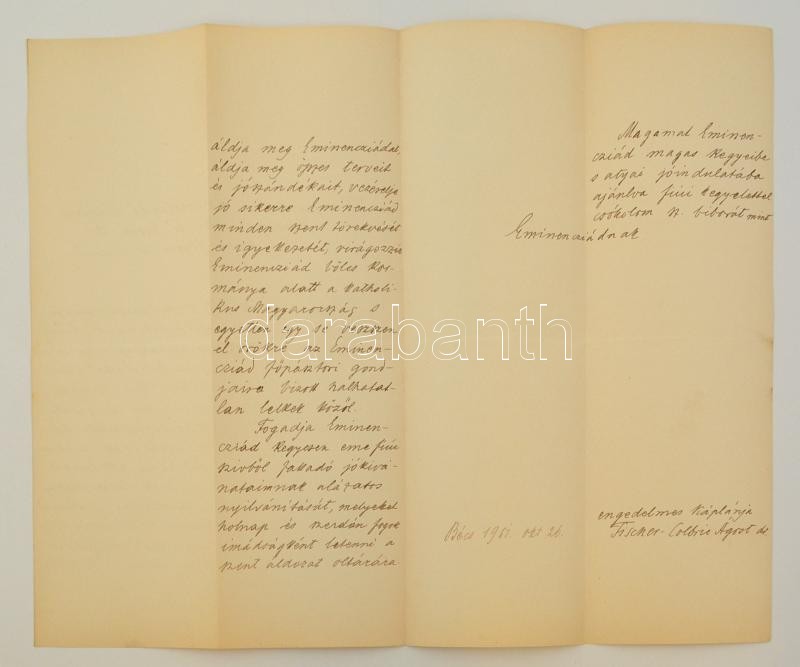 áldja meg Eminencziádat,
áldja meg összes terveit
és jószándékait, vezérelje
jó sikerre Eminencziád
minden szent törekvését
és igyekezetét, virágozzék
Eminencziád bölcs kor-
mánya alatt a katholi-
kus Magyarország s
egyetlen egy se vesszen
el örökre az Eminen-
cziád főpásztori gond-
jaira bízott halhatat-
lan lelkek közől.
Fogadja Eminen-
cziád kegyesen eme fiúi
szívből fakadó jókívá-
nataimnak alázatos
nyilvánítását, melyeket
holnap és szerdán fogok
imádságként letenni a
szent áldozat oltárára
Magamat Eminen-
cziád magas kegyeibe
s atyai jóindulatába
ajánlva fiúi kegyelettel
csókolom sz. bíborát mint
Eminencziádnak
engedelmes káplánja
Fischer-Colbrie Ágost dr
Bécs 1901. okt 26.
darabanth